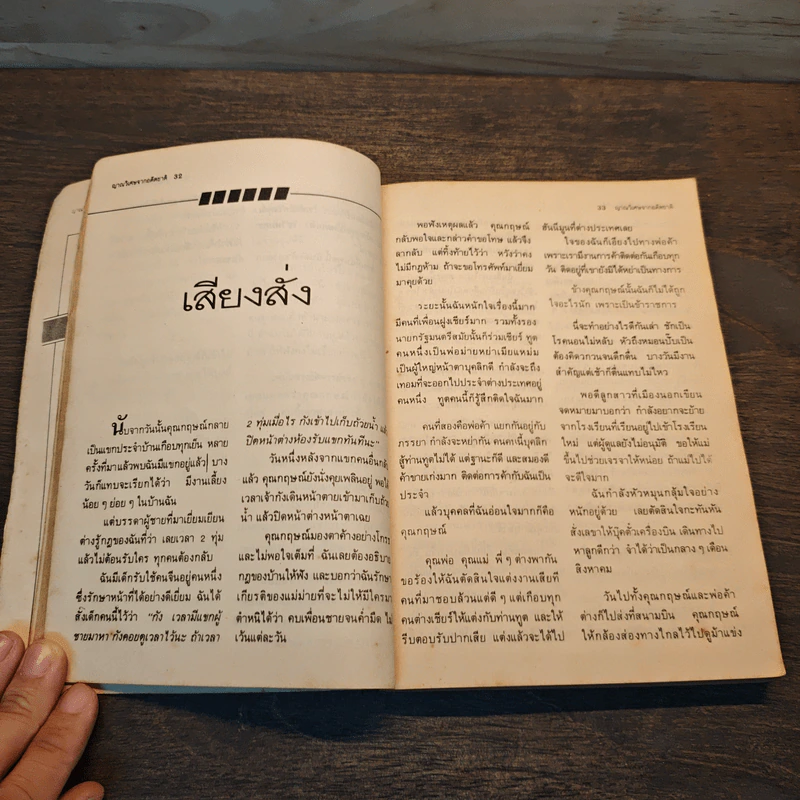 ญาณวิเศษจากอดีตชาติ 32
เสียงสั่ง
นับจากวันนั้นคุณกฤษณ์กลาย
เป็นแขกประจำบ้านเกือบทุกเย็น หลาย
ครั้งที่มาแล้วพบฉันมีแขกอยู่แล้ว บาง
วันก็แทบจะเรียกได้ว่า มีงานเลี้ยง
น้อย ๆ ย่อย ๆ ในบ้านฉัน
แต่บรรดาผู้ชายที่มาเยี่ยมเยียน
ต่างรู้กฎของฉันที่ว่า เลยเวลา 2 ทุ่ม
แล้วไม่ต้อนรับใคร ทุกคนต้องกลับ
ฉันมีเด็กรับใช้คนจีนอยู่คนหนึ่ง
ซึ่งรักษาหน้าที่ได้อย่างดีเยี่ยม ฉันได้
สั่งเด็กคนนี้ไว้ว่า "กัง เวลามีแขกผู้
ชายมาหา กังคอยดูเวลาไว้นะ ถ้าเวลา
2 ทุ่มเมื่อไร กังเข้าไปเก็บถ้วยน้ำ แ
ปิดหน้าต่างห้องรับแขกทันทีนะ"
วันหนึ่งหลังจากแขกคนอื่นกลั
แล้ว คุณกฤษณ์ยังนั่งคุยเพลินอยู่ พอไ
เวลาเจ้ากังเดินหน้าตายเข้ามาเก็บถ้ว
น้ำ แล้วปิดหน้าต่างหน้าตาเฉย
คุณกฤษณ์มองตาค้างอย่างโกร
และไม่พอใจเต็มที่ ฉันเลยต้องอธิบา
กฎของบ้านให้ฟัง และบอกว่าฉันรักษ
เกียรติของแม่ม่ายที่จะไม่ให้มีใครมา
ตำหนิได้ว่า คบเพื่อนชายจนค่ำมืด ไม
เว้นแต่ละวัน
33 ญาณวิเศษจากอดีตชาติ
พอฟังเหตุผลแล้ว คุณกฤษณ์
กลับพอใจและกล่าวคำขอโทษ แล้วจึง
ลากลับ แต่ทิ้งท้ายไว้ว่า หวังว่าคง
ไม่มีกฎห้าม ถ้าจะขอโทรศัพท์มาเยี่ยม
มาคุยด้วย
ระยะนั้นฉันหนักใจเรื่องนี้มาก
มีคนที่เพื่อนฝูงเชียร์มาก รวมทั้งรอง
นายกรัฐมนตรีสมัยนั้นก็ร่วมเชียร์ ทูต
คนหนึ่งเป็นพ่อม่ายหย่าเมียแหม่ม
เป็นผู้ใหญ่หน้าตาบุคลิกดี กำลังจะถึง
เทอมที่จะออกไปประจำต่างประเทศอยู่
คนหนึ่ง ทูตคนนี้ก็รู้สึกติดใจฉันมาก
คนที่สองคือพ่อค้า แยกกันอยู่กับ
ภรรยา กำลังจะหย่ากัน คนคนนี้บุคลิก
สู้ท่านทูตไม่ได้ แต่ฐานะก็ดี และสมองดี
ค้าขายเก่งมาก ติดต่อการค้ากับฉันเป็น
ประจำ
แล้วบุคคลที่ฉันอ่อนใจมากก็คือ
คุณกฤษณ์
คุณพ่อ คุณแม่ พี่ ๆ ต่างพากัน
ขอร้องให้ฉันตัดสินใจแต่งงานเสียที
คนที่มาชอบล้วนแต่ดี ๆ แต่เกือบทุก
คนต่างเชียร์ให้แต่งกับท่านทูต และให้
รีบตอบรับปากเสีย แต่งแล้วจะได้ไป
ฮันนีมูนที่ต่างประเทศเลย
ใจของฉันก็เอียงไปทางพ่อค้า
เพราะเรามีงานการค้าติดต่อกันเกือบทุก
วัน ติดอยู่ที่เขายังมิได้หย่าเป็นทางการ
ข้างคุณกฤษณ์นั้นฉันก็ไม่ได้ถูก
ใจอะไรนัก เพราะเป็นข้าราชการ
นี่จะทำอย่างไรดีกันเล่า ชักเป็น
โรคนอนไม่หลับ หัวถึงหมอนปั๊บเป็น
ต้องคิดวกวนจนดึกดื่น บางวันมีงาน
สำคัญแต่เช้าก็ตื่นแทบไม่ไหว
พอดีลูกสาวที่เมืองนอกเขียน
จดหมายมาบอกว่า กำลังอยากจะย้าย
จากโรงเรียนที่เรียนอยู่ไปเข้าโรงเรียน
ใหม่ แต่ผู้ดูแลยังไม่อนุมัติ ขอให้แม่
ขึ้นไปช่วยเจรจาให้หน่อย ถ้าแม่ไปได้
จะดีใจมาก
ฉันกำลังหัวหมุนกลุ้มใจอย่าง
หนักอยู่ด้วย เลยตัดสินใจกะทันหัน
สั่งเลขาให้บุ๊คตั๋วเครื่องบิน เดินทางไป
หาลูกดีกว่า จำได้ว่าเป็นกลาง ๆ เดือน
สิงหาคม
วันไปทั้งคุณกฤษณ์และพ่อค้า
ต่างก็ไปส่งที่สนามบิน คุณกฤษณ์
ให้กล้องส่องทางไกลไว้ไปดูม้าแข่ง